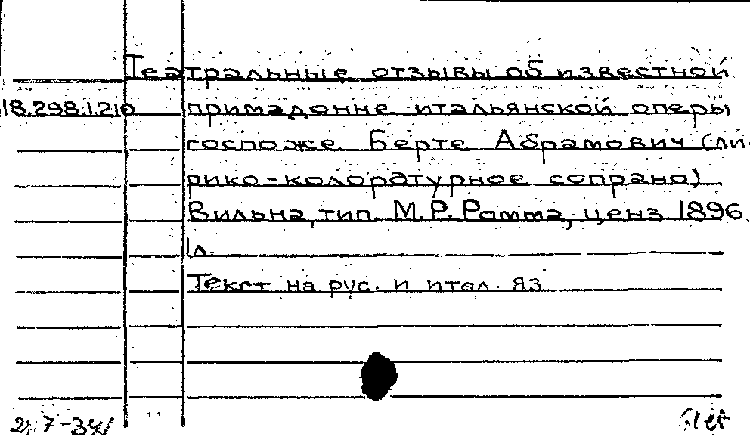 Театральные отзывы об известной
18.298.1.210 примадонне итальянской оперы
госпоже Берте Абрамович (ли-
рико-колоратурное сопрано)
Вильна, тип. М.Р. Ромма, ценз 1896.
1л.
Текст на рус. и итал. яз